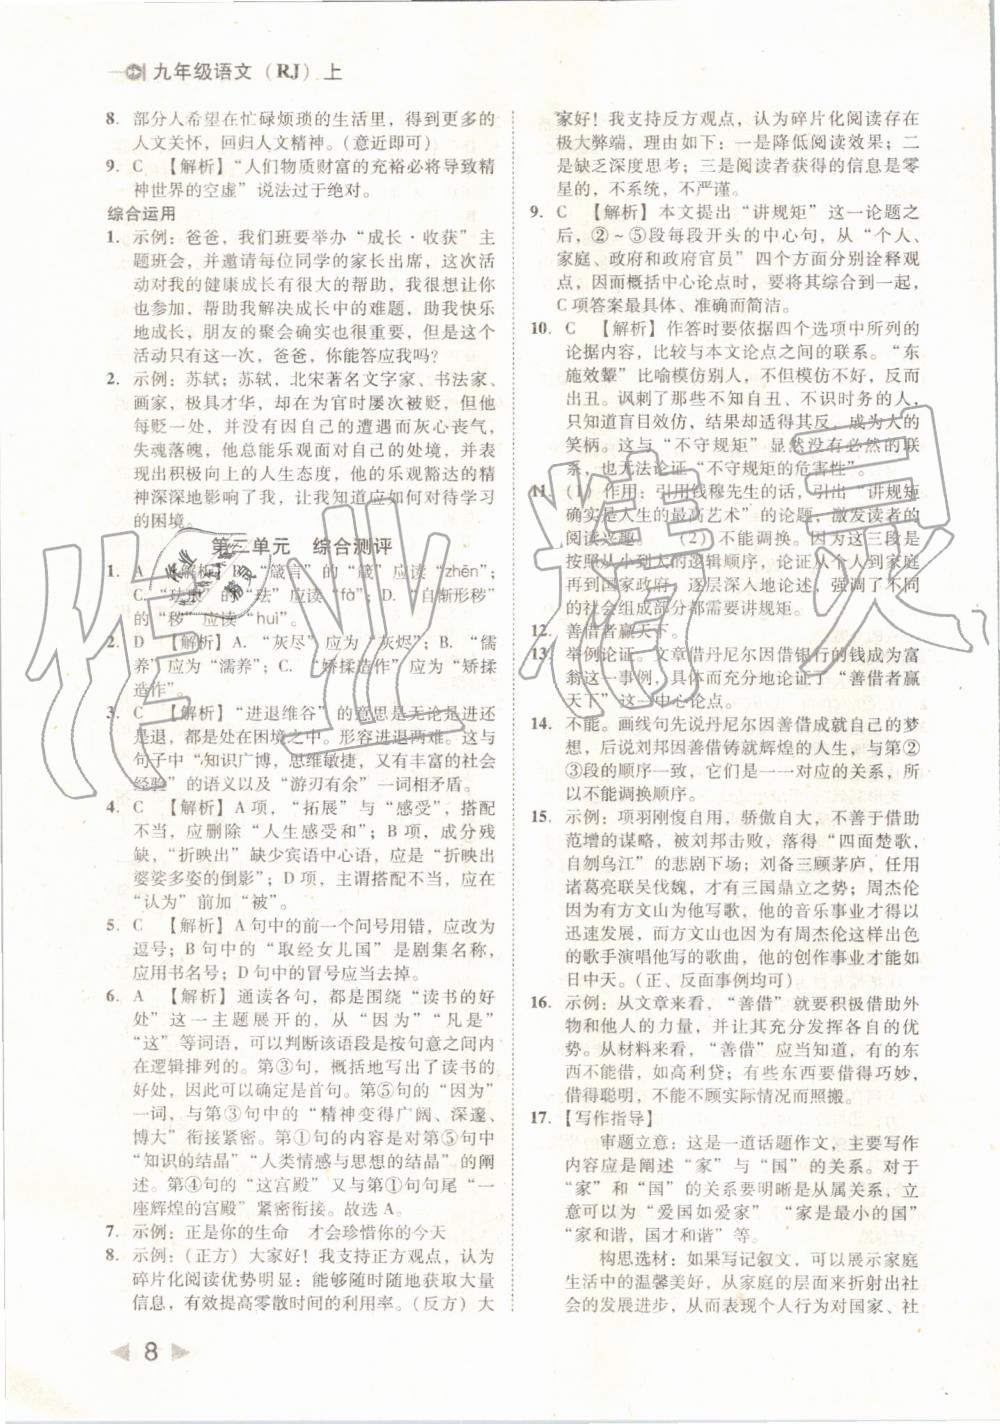 九年级语文（RJ）上
8. 部分人希望在忙碌烦琐的生活里，得到更多的
人文关怀，回归人文精神。（意近即可）
9. C 【解析】“人们物质财富的充裕必将导致精
神世界的空虚”说法过于绝对。
综合运用
1. 示例：爸爸，我们班要举办“成长·收获”主
题班会，并邀请每位同学的家长出席，这次活
动对我的健康成长有很大的帮助，我很希望你
也参加，帮助我解决成长中的难题，助我快乐
地成长，朋友的聚会确实也很重要，但是这个
活动只有这一次，爸爸，你能答应我吗？
2. 示例：苏轼；苏轼，北宋著名文字家、书法家、
画家，极具才华，却在为官时屡次被贬，但他
每贬一处，并没有因自己的遭遇而灰心丧气，
失魂落魄，他总能乐观面对自己的处境，并表
现出积极向上的人生态度，他的乐观豁达的精
神深深地影响了我，让我知道应如何对待学习
的困境。
第三单元 综合测评
1. A 【解析】B．“箴言”的“箴”应读“zhēn”；
C．“珐琅”的“珐”应读“fà”；D．“自惭形秽”
的“秽”应读“huì”。
2. D 【解析】A．“灰尽”应为“灰烬”；B．“儒
养”应为“濡养”；C．“娇揉造作”应为“矫揉
造作”。
3. C 【解析】“进退维谷”的意思是无论是进还
是退，都是处在困境之中。形容进退两难。这与
句子中“知识广博，思维敏捷，又有丰富的社会
经验”的语义以及“游刃有余”一词相矛盾。
4. C 【解析】A 项，“拓展”与“感受”，搭配
不当，应删除“人生感受和”；B 项，成分残
缺，“折映出”缺少宾语中心语，应是“折映出
婆娑多姿的倒影”；D 项，主谓搭配不当，应在
“认为”前加“被”。
5. C 【解析】A 句中的前一个问号用错，应改为
逗号；B 句中的“取经女儿国”是剧集名称，
应用书名号；D 句中的冒号应当去掉。
6. A 【解析】通读各句，都是围绕“读书的好
处”这一主题展开的，从“因为”“凡是”
“这”等词语，可以判断该语段是按事理的内
在逻辑排列的。第③句，概括地写出了读书的
好处，因此可以确定是首句。第⑤句的“因为”
一词，与第③句中的“精神变得广阔、深邃、
博大”衔接紧密。第①句的内容是对第⑤句中
“知识的结晶”“人类情感与思想的结晶”的阐
述。第④句的“这宫殿”又与第①句句末“一
座辉煌的宫殿”紧密衔接。故选 A。
7. 示例：正是你的生命 才会珍惜你的今天
8. 示例：（正方）大家好！我支持正方观点，认为
碎片化阅读优势明显：能够随时随地获取大量
信息，有效提高零散时间的利用率。（反方）大
家好！我支持反方观点，认为碎片化阅读存在
极大弊端，理由如下：一是降低阅读效果；二
是缺乏深度思考；三是阅读者获得的信息是零
星的，不系统，不严谨。
9. C 【解析】本文提出“讲规矩”这一论题之
后，②～⑤段每段开头的中心句，从“个人、
家庭、政府和政府官员”四个方面分别诠释观
点，因而概括中心论点时，要将其综合到一起，
C 项答案最具体、准确而简洁。
10. C 【解析】作答时要依据四个选项中所列的
论据内容，比较与本文论点之间的联系。“东
施效颦”比喻模仿别人，不但模仿不好，反而
出丑。讽刺了那些不知自丑、不识时务的人，
只知道盲目效仿，结果却适得其反，成为大的
笑柄。这与“不守规矩”显然没有必然的联
系，也无法论证“不守规矩的危害性”。
11. （1）作用：引用钱穆先生的话，引出“讲规矩
确实是人生的最高艺术”的论点，激发读者的
阅读兴趣。 （2）不能调换。因为这三段是
按照从小到大的逻辑顺序，从个人到家庭
再到国家政府，逐层深入地论述，强调了不同
的社会组成部分都需要讲规矩。
12. 善借者赢天下。
13. 举例论证。文章借丹尼尔因借银行的钱成为富
翁这一事例，具体而充分地论证了“善借者赢
天下”这一中心论点。
14. 不能。画线句先说丹尼尔因善借成就自己的梦
想，后说刘邦因善借铸就辉煌的人生，与第②
③段的顺序一致，它们是一一对应的关系，所
以不能调换顺序。
15. 示例：项羽刚愎自用，骄傲自大，不善于借助
范增的谋略，被刘邦击败，落得“四面楚歌，
自刎乌江”的悲剧下场；刘备三顾茅庐，任用
诸葛亮联吴伐魏，才有三国鼎立之势；周杰伦
因为有方文山为他写歌，他的音乐事业才得以
迅速发展，而方文山也因为有周杰伦这样出色
的歌手演唱他写的歌曲，他的创作事业才能如
日中天。（正、反面事例均可）
16. 示例：从文章来看，“善借”就要积极借助外
物和他人的力量，并让其充分发挥各自的优
势。从材料来看，“善借”应当知道，有的东
西不能借，如高利贷；有些东西要借得巧妙，
借得聪明，不能不顾实际情况而照搬。
17. 【写作指导】
审题立意：这是一道话题作文，主要写作
内容应是阐述“家”与“国”的关系。对于
“家”和“国”的关系要明晰是从属关系，立
意可以为“爱国如爱家”“家是最小的国”
“家和谐，国才和谐”等。
构思选材：如果写记叙文，可以展示家庭
生活中的温馨美好，从家庭的层面来折射出社
会的发展进步，从而表现个人行为对国家、社
8
作业精灵